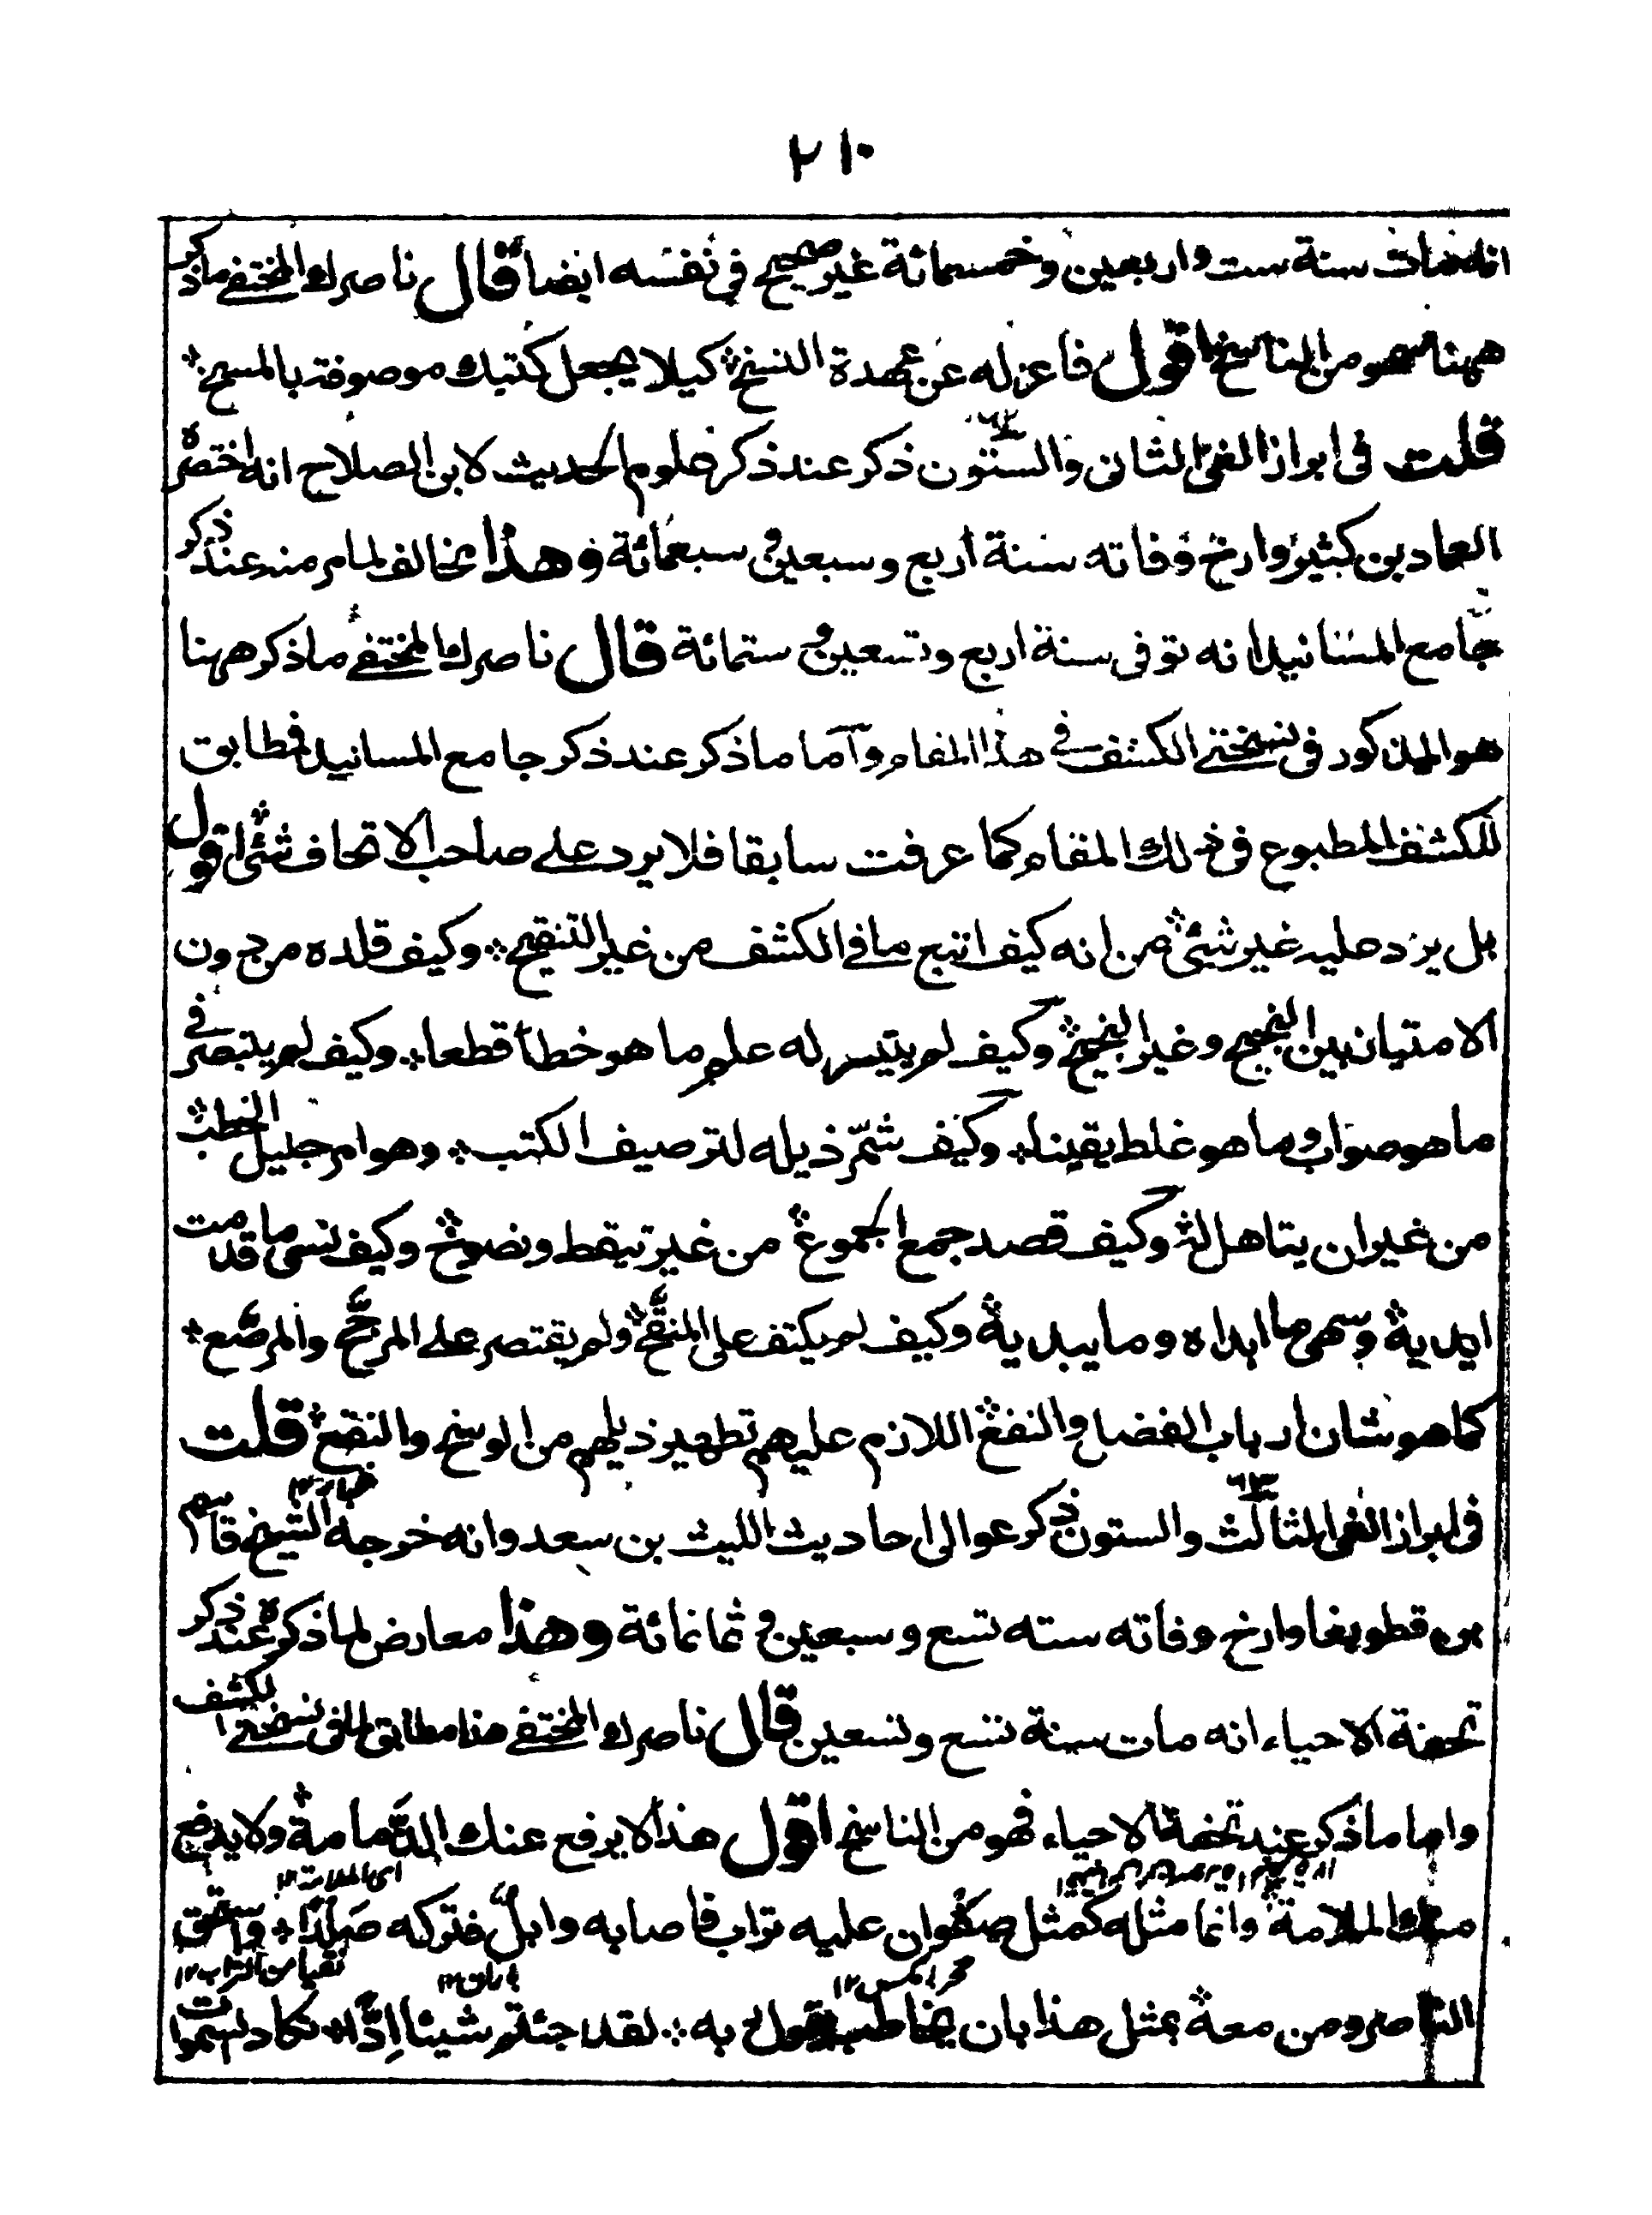 ٢١٠
انه مات سنة ست واربعين وخمسمائة غير صحيح في نفسه ايضا قال ناصرك المختفي ما ذكر
ههنا سهو من الناسخ اقول فاعزله عن عهدة النسخ كيلا يجعل كتبك موصوفة بالمسخ
قلت في ابراز الغي الثاني والستون ذكر عند ذكر علوم الحديث لابن الصلاح انه اختصره
٦٢
العماد بن كثير وارخ وفاته سنة اربع وسبعين وسبعمائة وهذا مخالف لما مر منه عند ذكر
جامع المسانيد انه توفى سنة اربع وتسعين وستمائة قال ناصرك المختفي ما ذكر ههنا
هو المذكور في نسختي الكشف في هذا المقام وآما ما ذكر عند ذكر جامع المسانيد فمطابق
للكشف المطبوع في ذلك المقام كما عرفت سابقا فلا يرد على صاحب الاتحاف شئ اقول
بل يرد عليه غير شئ من انه كيف اتبع ما في الكشف من غير التنقيح وكيف قلده من دون
الامتياز بين النجيح وغير النجيح وكيف لم يتيسر له علم ما هو خطأ قطعا وكيف لم يتبصر في
ما هو صواب وما هو غلط يقينا وكيف شمّر ذيله لترصيف الكتب وهو امر جليل الخطب
من غير ان يتاهل له وكيف قصد جمع الجموع من غير تيقظ ونضوج وكيف نسى ما قدمت
ايديه وسهى ما ابداه وما يبديه وكيف لم يكتف على المنقّح ولم يقتصر على المرجّح والمرصّع
كما هو شان ارباب الفضل والنفع اللازم عليهم تطهير ذيلهم من الوسخ والنقع قلت
غبار ١٢
في ابراز الغي الثالث والستون ذكر عوالى احاديث الليث بن سعد وانه خرجه الشيخ قاسم
٦٣
بن قطلوبغا وارخ وفاته سنه تسع وسبعين وثمانمائة وهذا معارض لما ذكره عند ذكر
تحفة الاحياء انه مات سنة تسع وتسعين قال ناصرك المختفي هذا مطابق لما في نسختي الكشف
واما ما ذكر عند تحفة الاحياء فهو من الناسخ اقول هذا لا يرفع عنك الذّمامة ولا يدفع
منك الملامة وانما مثله كمثل صفوان عليه تراب فاصابه وابلٌ فتركه صَلدًا وستحق
اى الملامت ١٢
الناصر ومن معه بمثل هذا بان يخاطب بقول به لقد جئتم شيئا اِدًّا تكاد السموات
حجر املس ١٢
باران ١٢
نقيا من التراب ١٢